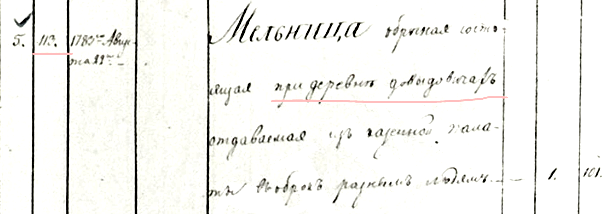 5. 113. 1785го Авгус- Мельница оброчная состо-
та 22го
ящая при деревне довыдовичахъ
отдаваемая изъ казенной пала-
ты въ оброкъ разнымъ людямъ 1. 101.